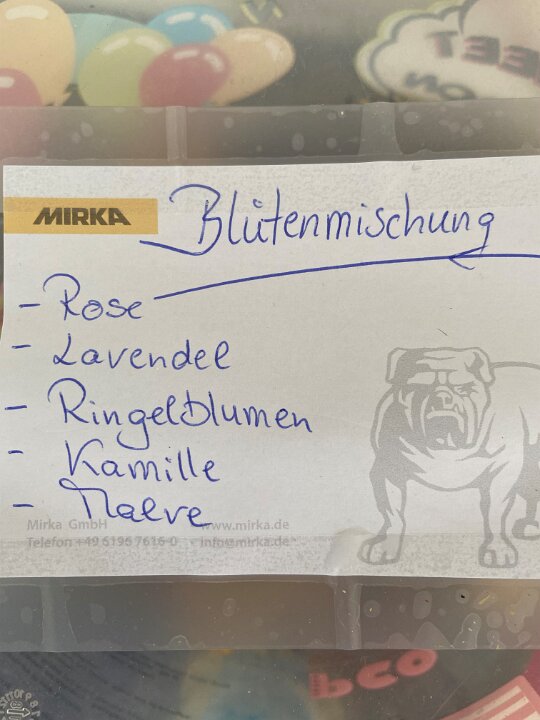 MIRKA
Blütenmischung
- Rose
- Lavendel
- Ringelblumen
- Kamille
- Malve
Mirka GmbH www.mirka.de
Telefon +49 6196 7616-0 info@mirka.de